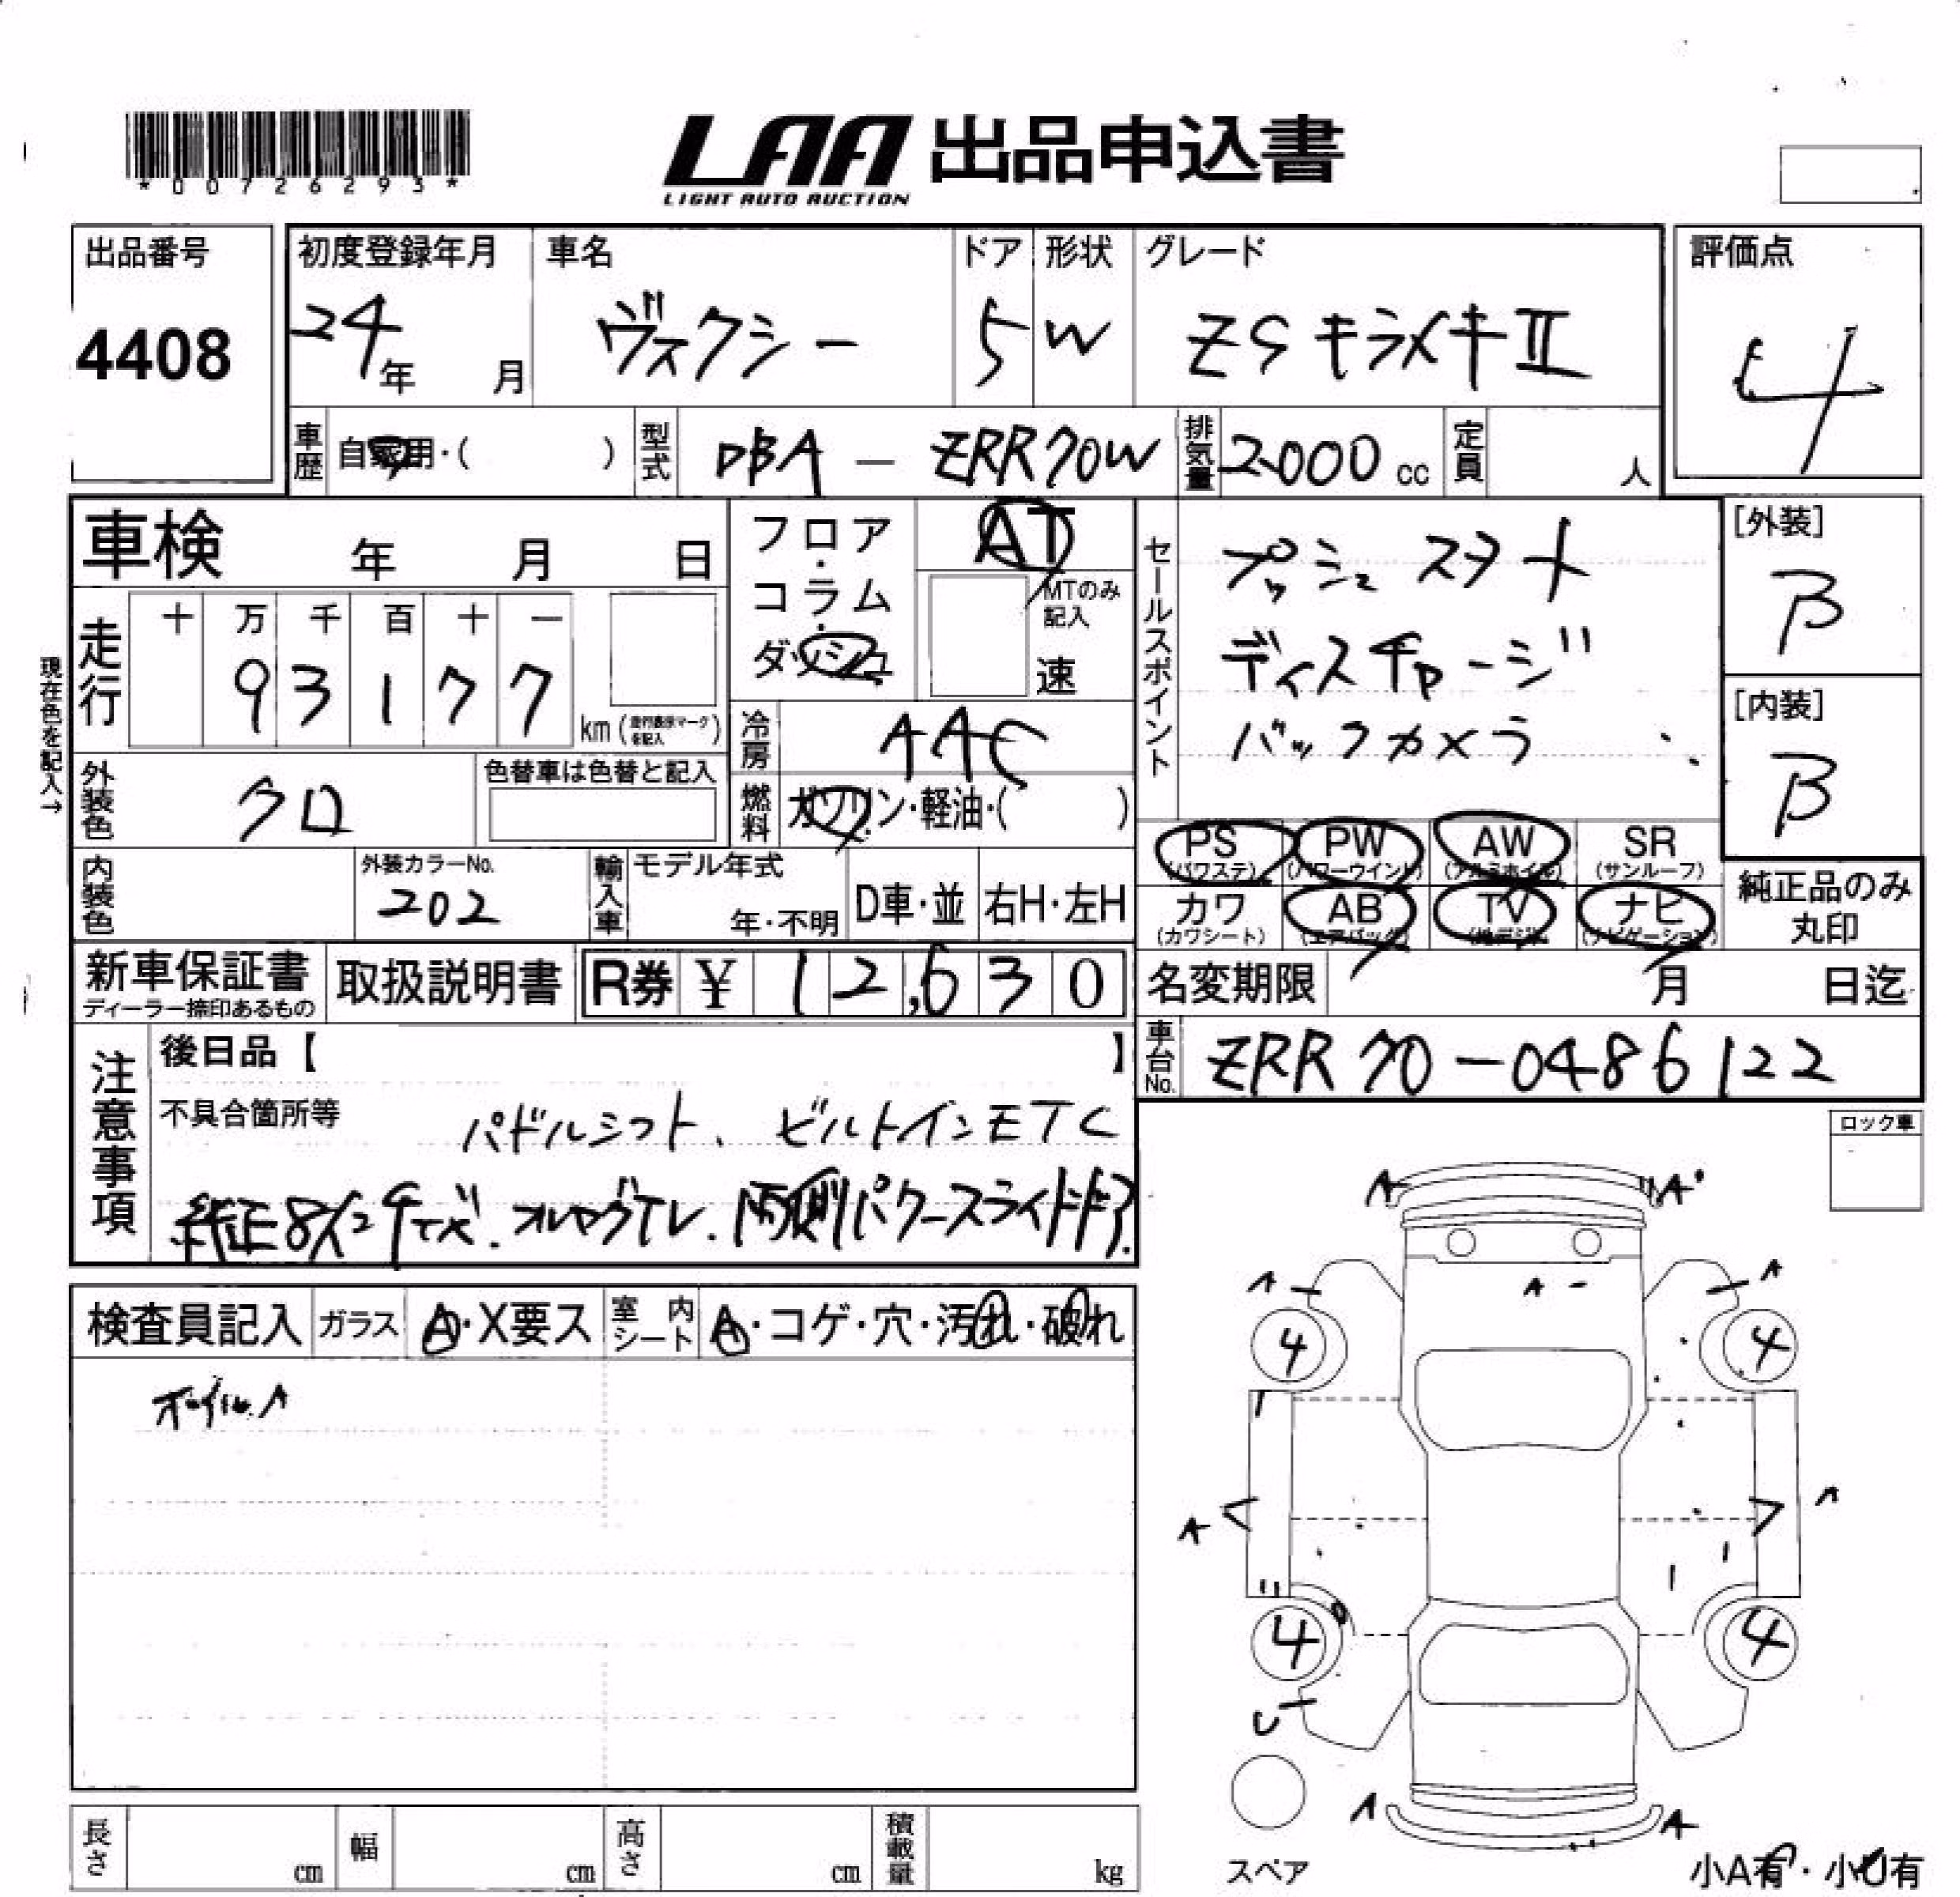 *00726293*
LAA 出品申込書
LIGHT AUTO AUCTION
出品番号
4408
初度登録年月
24年 月
車名
ヴォクシー
ドア
5
形状
W
グレード
ZS キラメキⅡ
評価点
4
車歴 自家用・( )
型式 DBA — ZRR70W
排気量 2000 cc
定員 人
車検 年 月 日
フロア・コラム・ダッシュ
AT
MTのみ記入
速
セールスポイント
プッシュスタート
ディスチャージ
バックカメラ
[外装]
B
[内装]
B
現在色を記入→
走行
十 万 千 百 十 一
93177
km (走行表示マークを記入)
冷房 AAC
外装色 クロ
色替車は色替と記入
燃料 ガソリン・軽油・( )
PS (パワステ)
PW (パワーウインド)
AW (アルミホイル)
SR (サンルーフ)
カワ (カワシート)
AB (エアバッグ)
TV (地デジ)
ナビ (ナビゲーション)
純正品のみ丸印
内装色
外装カラーNo.
202
輸入車
モデル年式
年・不明
D車・並
右H・左H
新車保証書
ディーラー捺印あるもの
取扱説明書
R券 ¥ 12,630
名変期限 月 日迄
車台No. ZRR70-0486122
注意事項
後日品【 】
不具合箇所等
パドルシフト、ビルトインETC
純正8インチナビ.フルセグTV.両側パワースライドドア.
ロック車
検査員記入
ガラス A・X要ス
室内シート A・コゲ・穴・汚れ・破れ
ホイルA
A A
A A A
4 4
A A
4 4
U
A A
スペア
小A有・小U有
長さ cm
幅 cm
高さ cm
積載量 kg